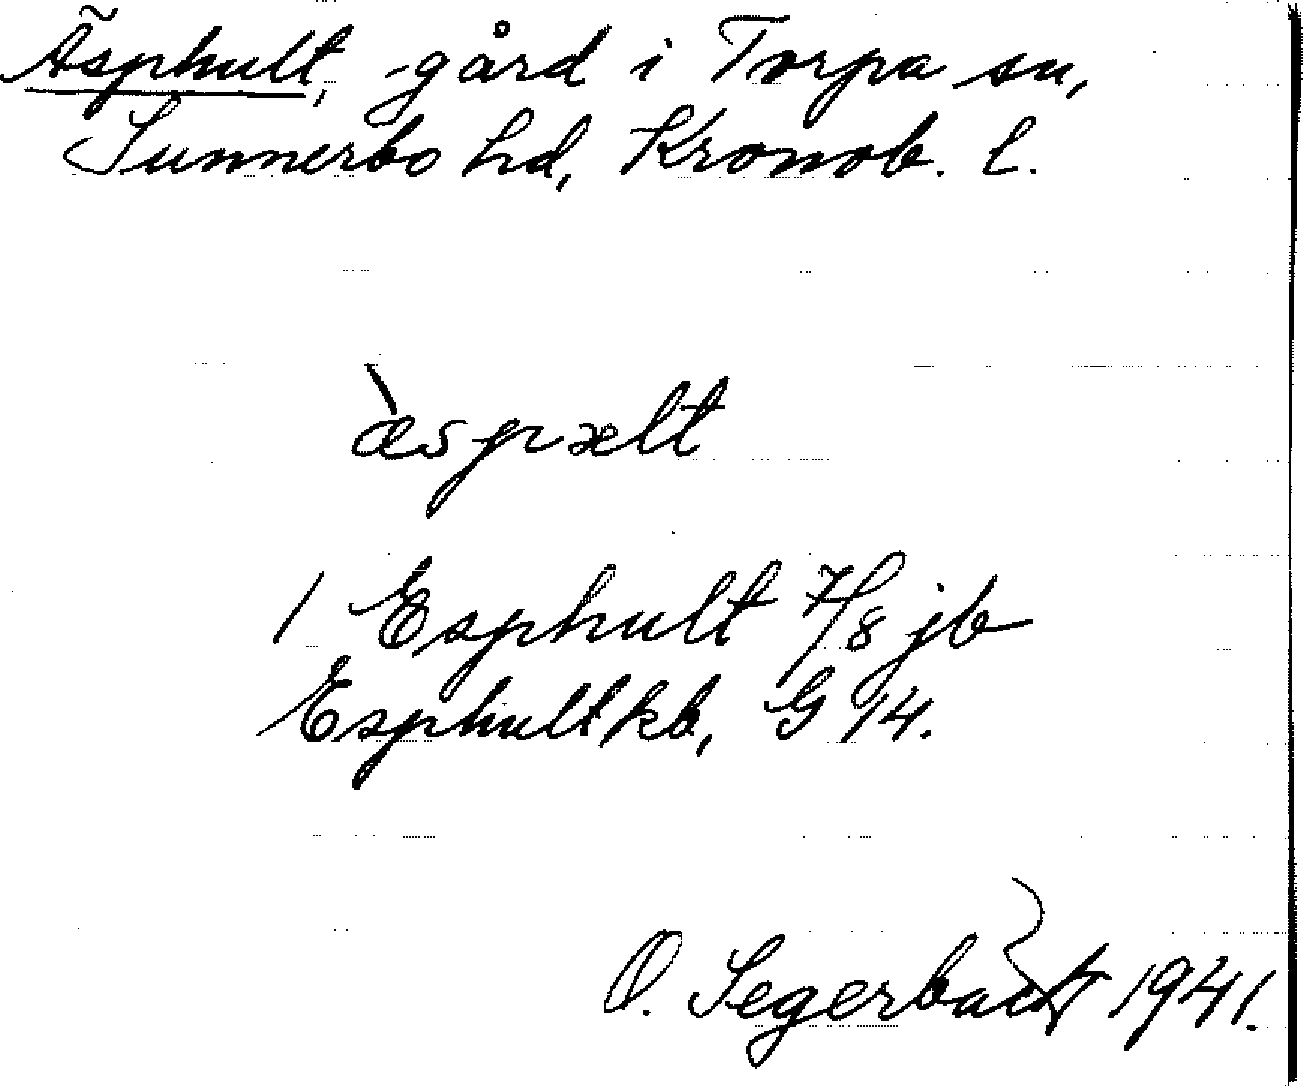 Äsphult, gård i Torpa sn,
Sunnerbo hd, Kronob. l.
æ̀spælt
1 Esphult 7/8 jb
Esphult kb, G 14.
O. Segerbäck 1941.